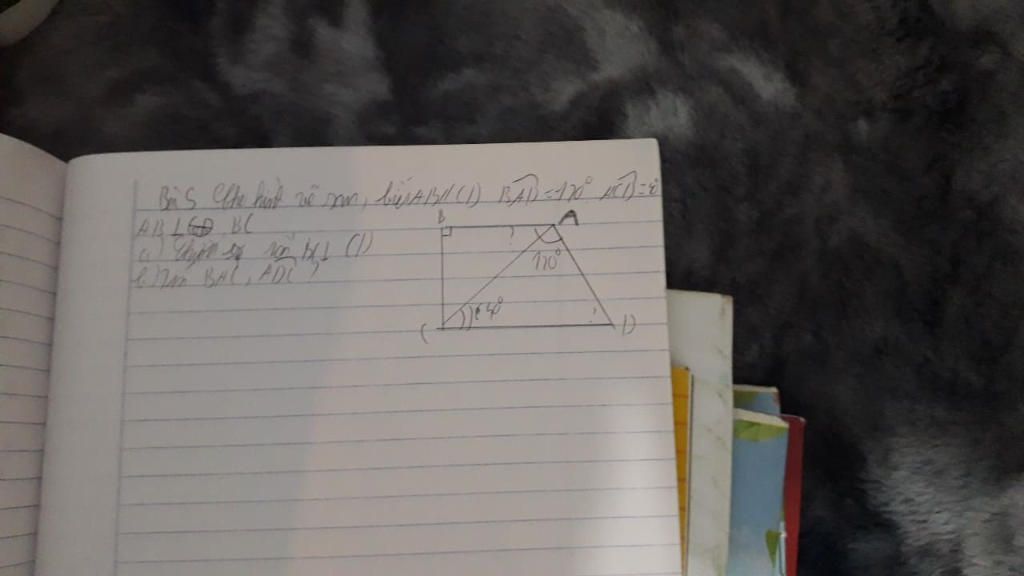 Bài 5 Cho hình vẽ sau, biết AB//CD BAD=120° ACD=
AB⊥ BC
a) BC⊥ CD
b) Tìm BAC, ADC ?
B A
? 120°
40° ?
C D